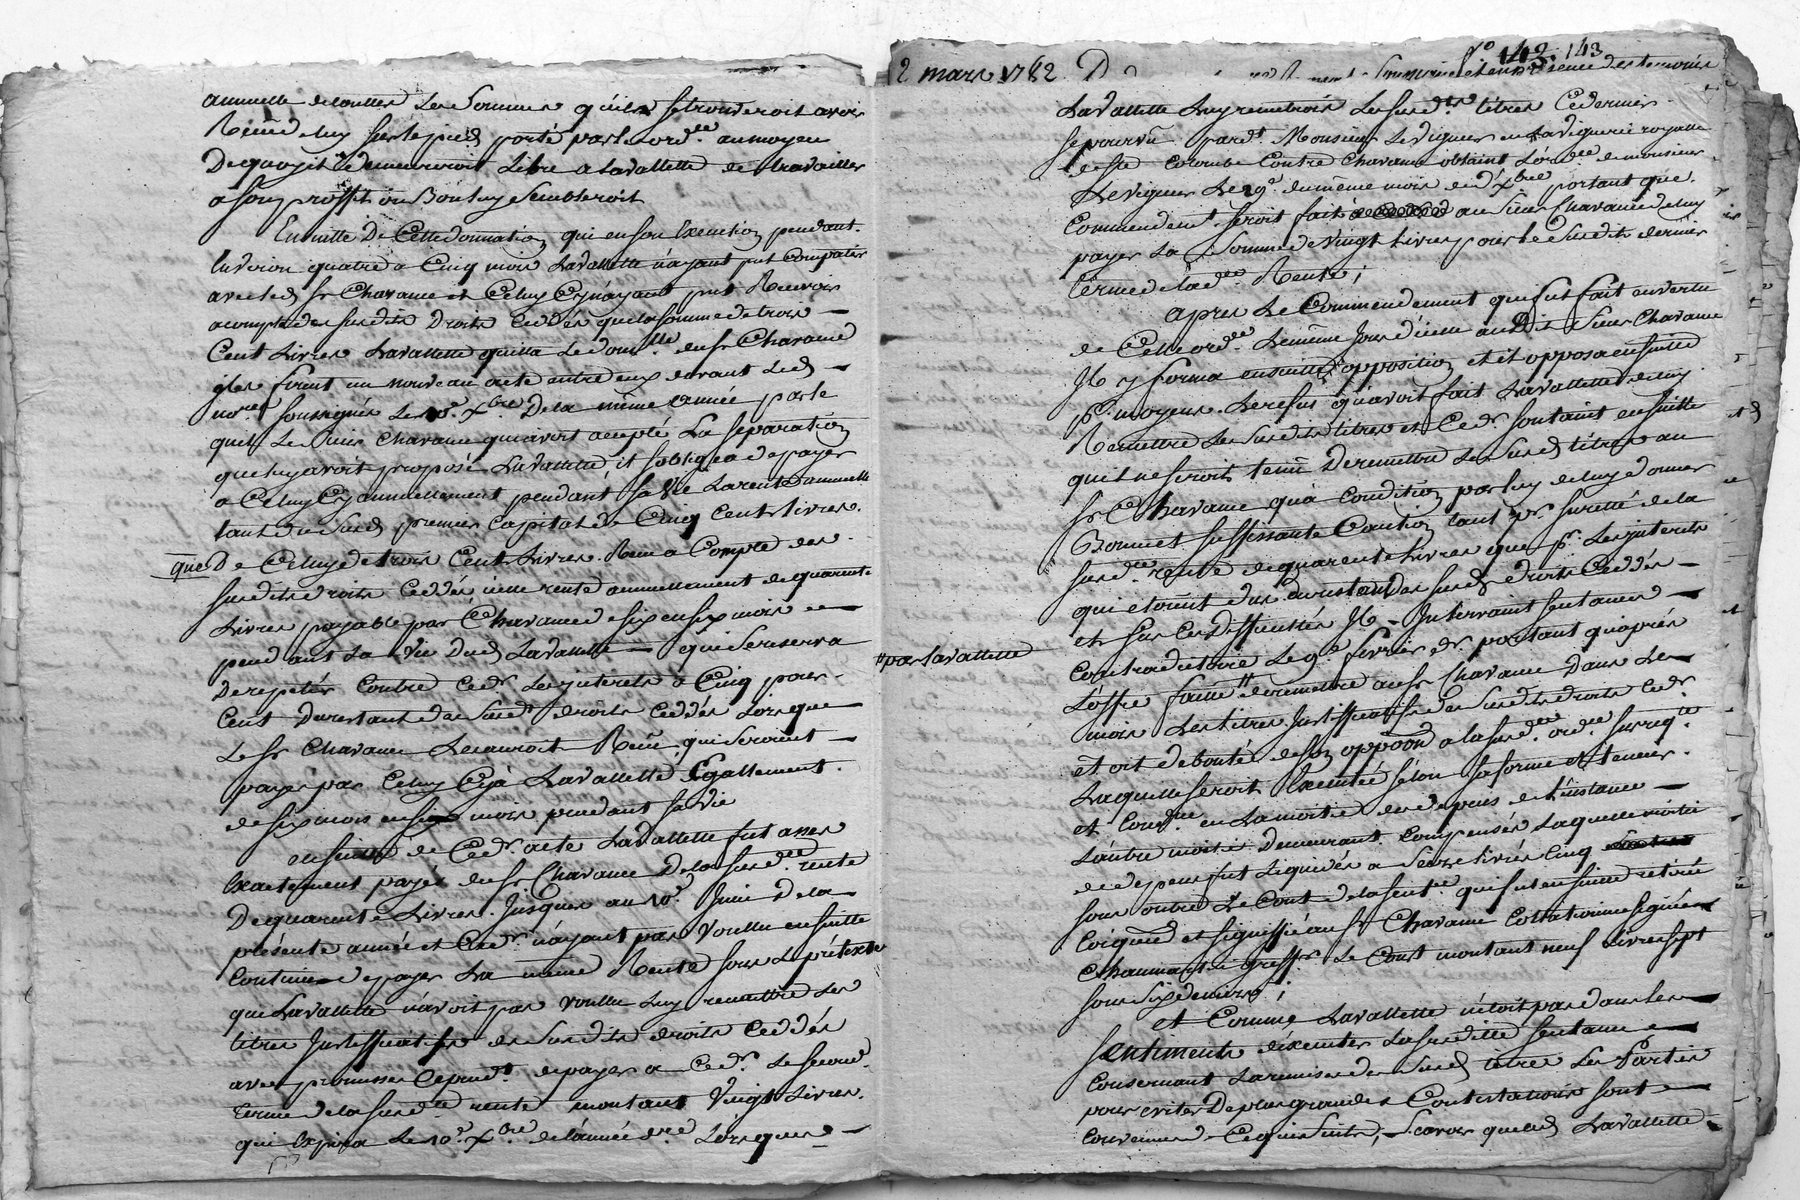 annuelle de touttes les sommes qu'il se trouveroit avoir
Reçüe de luy sur le pied porté par l'ord.ce au moyen
De quoy il demeureroit Libre a Lavallette de travailler
a son proffit ou Bon luy sembleroit
En suitte De Cette donnation qui eu son Execution pendant
Environ quatre a Cinq mois Lavallette n'ayant put compatir
avec led. Sr Chavanne et Celuy Cy n'ayant put Recevoir
a compte des susdits Droits Ceddés que la somme de trois
Cent Livres Lavallette quitta le dom.lle du Sr Chavanne
ils firent un nouveau acte entre eux devant led.
no.re soussigné le 10.e Xbre De la même année par le
quel le Sieur Chavanne qui avoit accepté La separation
que luy avoit proposé Lavallette, il s'obligea de payer
a Celuy Cy annuellement pendant sa vie La rente annuelle
tant du susd. premier Capital de Cinq Cent livres
que De Celuy de trois Cent Livres Reçu a Compte des
susdits droits Ceddés, une rente annuellement de quarente
Livres payable par Chavanne de six en six mois
pendant La vie Dud. Lavallette qui se reserva
De repeter Contre Ced.r les interets a Cinq pour
Cent Du restant des susd. droits Ceddés Lorsque
Le Sr Chavanne les auroit Reçüe qui seroient
payés par Celuy Cy a Lavallette Egallement
de six mois en six mois pendant sa vie
en suitte de Ced.r acte Lavallette fut assés
Exactement payé du Sr Chavanne De la susd.te rente
De quarente Livres Jusques au 10.e Juin De la
présente année et Ced.r n'ayant pas voullu en suitte
Continuer de payer La même Rente sous le prétexte
que Lavallette n'avoit pas voullu luy remettre les
titres Justifficatifs des susdits droits Ceddés
avec promesse Cepend.t de payer a Ced.r le second
terme de la susd.te rente montant Vingt Livres
qui Expira le 10.e Xbre de l'année d.re Lorsque
2 mars 1762 N.o 142. 143
Lavallette luy remetroit les susd.ts titres Ce dernier
se pourvû pard.t Monsieur le Viguier en la Viguerie royalle
de Ste Colombe Contre Chavanne obtint L'ord.ce de monsieur
le Viguier le 29.e du même mois de Xbre portant que
Commendem.t seroit fait au Sieur Chavanne de luy
payer La somme de Vingt Livres pour le susdit dernier
terme de lad.te Rente;
apres Le Commendement qui fut fait en vertu
de Cette ord.ce le même Jour d'icelle aud. Sieur Chavanne
Il y forma en suitte opposition et il opposa en suitte
p.r moyens le refus qu'avoit fait Lavallette de luy
Remettre les susdits titres et Ced.r soutint en suitte
qu'il ne seroit tenü De remettre les susd. titres au
Sr Chavanne qu'a condition par luy de luy donner
Bonne et suffissante Caution tant p.r sureté de la
susd.te rente de quarente livres que p.r les interets
qui etoient dus du restant des susd. droits Ceddés
et sur Ces Difficultés Il Intervint sentance
Contradictoire le 9.e fevrier d.r portant qu'après
L'offre faitte par lavallette de remettre au Sr Chavanne Dans le
mois Les titres Justifficatifs des susdits droits Ced.r
et oit debouté de son oppoon a la susd.te ord.ce
Laquelle seroit Executée selon sa forme et teneur
et Cond.ne en La moitié des depens de L'instance
L'autre moitié demeurant compensés Laquelle moitié
de depens fut Liquidée a seize livres Cinq
sous outre le Cout de la sent.ce qui fut en suitte retirée
et signiffié au Sr Chavanne
le Cout montant neuf livres sept
sous six deniers;
et Comme Lavallette n'etoit pas dans les
sentiments d'éxécuter La susditte sentance
Concernant La remise des susd. titres Les Parties
pour eviter De plus grandes Contestations sont
convenues Ce qui suit; scavoir que led. Lavallette